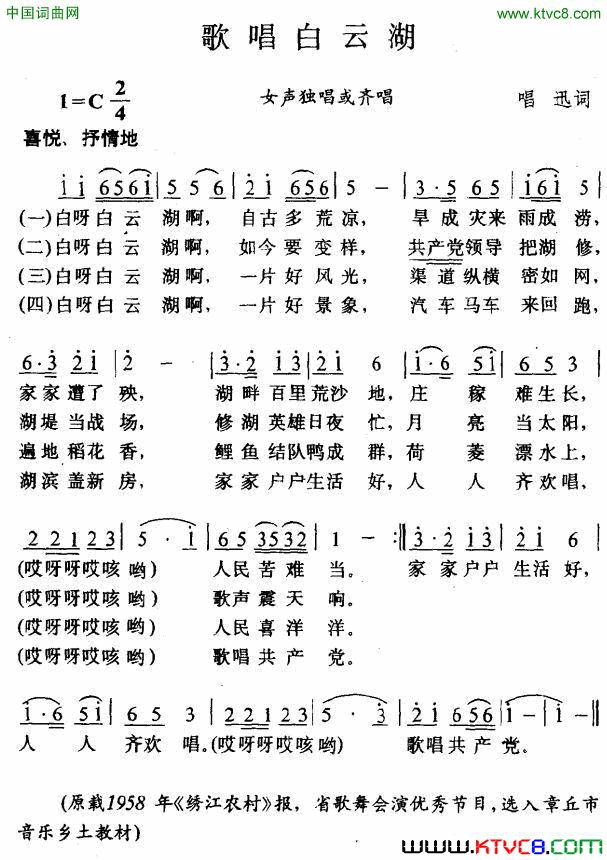 中国词曲网
www.ktvc8.com
歌唱白云湖
1=C 2/4
女声独唱或齐唱
唱 迅词
喜悦、抒情地
i i 6561 | 5 5 6 | 2 i 656 | 5 - | 3·5 65 | i61 5 |
(一)白呀白云 湖啊, 自古多荒凉, 旱成灾来雨成涝,
(二)白呀白云 湖啊, 如今要变样, 共产党领导把湖修,
(三)白呀白云 湖啊, 一片好风光, 渠道纵横密如网,
(四)白呀白云 湖啊, 一片好景象, 汽车马车来回跑,
6·3 2i | 2 - | 3·2 i3 | 2i 6 | i·6 5i | 65 3 |
家家遭了殃, 湖畔百里荒沙地,庄稼难生长,
湖堤当战场, 修湖英雄日夜忙,月亮当太阳,
遍地稻花香, 鲤鱼结队鸭成群,荷菱漂水上,
湖滨盖新房, 家家户户生活好,人人齐欢唱,
22123 | 5·i | 65 3532 | 1 - :‖ 3·2 i3 | 2i 6 |
(哎呀呀哎咳哟) 人民苦难当。 家家户户生活好,
(哎呀呀哎咳哟) 歌声震天响。
(哎呀呀哎咳哟) 人民喜洋洋。
(哎呀呀哎咳哟) 歌唱共产党。
i·6 5i | 65 3 | 22123 | 5·3 | 2i 656 | i - | i - ‖
人人齐欢唱。(哎呀呀哎咳哟) 歌唱共产党。
(原载1958年《绣江农村》报,省歌舞会演优秀节目,选入章丘市
音乐乡土教材)
www.KTVC8.com